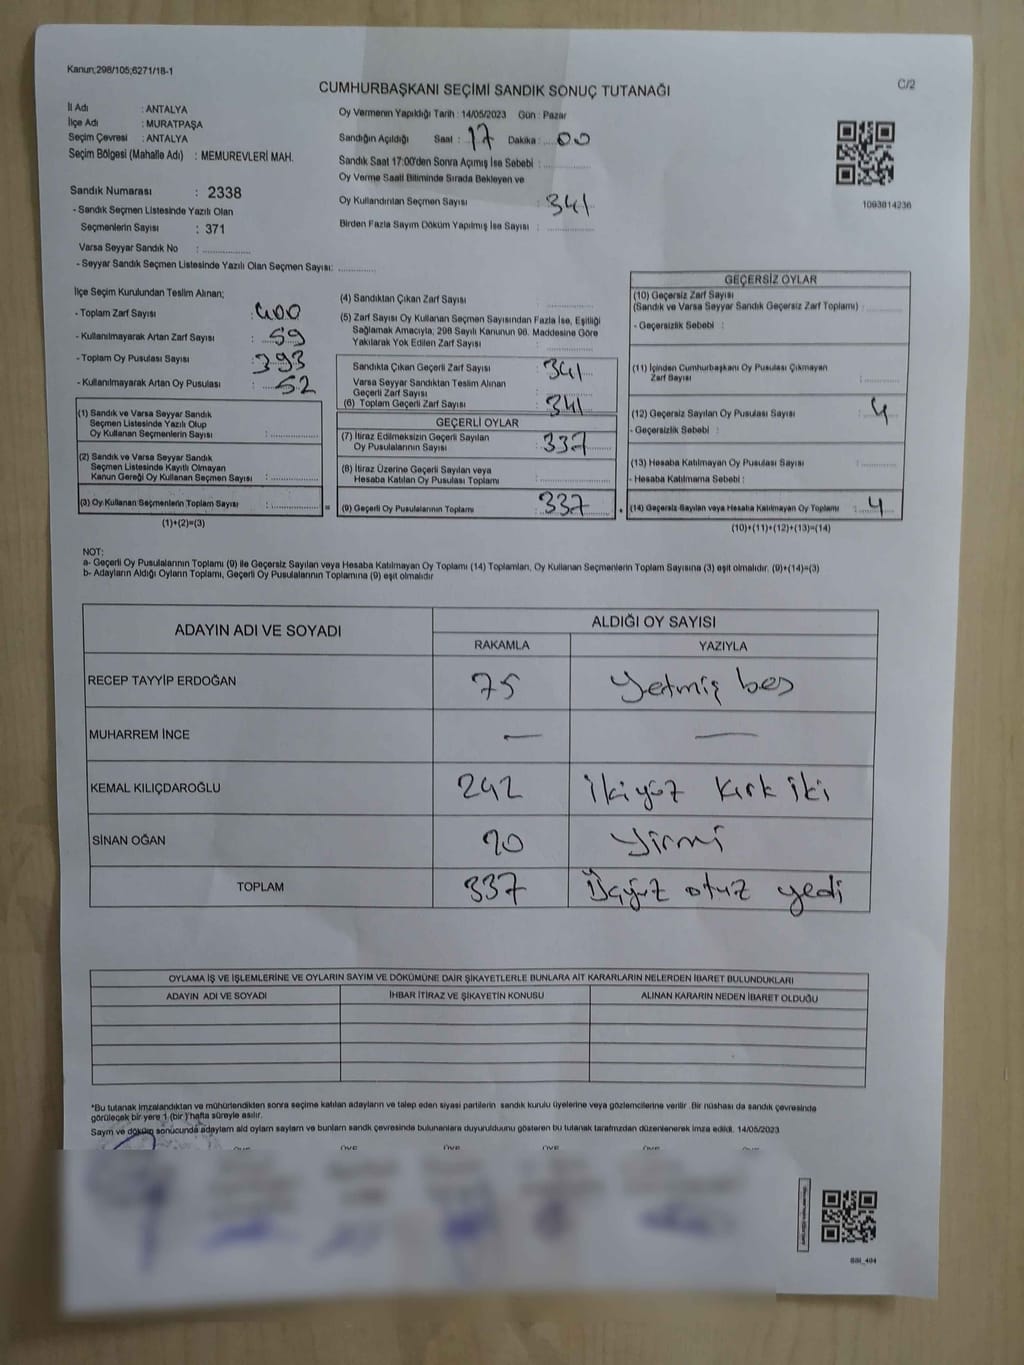 Kanun;298/105;6271/18-1
CUMHURBAŞKANI SEÇİMİ SANDIK SONUÇ TUTANAĞI
C/2
İl Adı : ANTALYA
İlçe Adı : MURATPAŞA
Seçim Çevresi : ANTALYA
Seçim Bölgesi (Mahalle Adı) : MEMUREVLERİ MAH.
Sandık Numarası : 2338
- Sandık Seçmen Listesinde Yazılı Olan
Seçmenlerin Sayısı : 371
Varsa Seyyar Sandık No : ..............
- Seyyar Sandık Seçmen Listesinde Yazılı Olan Seçmen Sayısı: ............
Oy Vermenin Yapıldığı Tarih : 14/05/2023 Gün : Pazar
Sandığın Açıldığı Saat : 17 Dakika : 00
Sandık Saat 17:00'den Sonra Açımış İse Sebebi : ..............
Oy Verme Saati Bitiminde Sırada Bekleyen ve
Oy Kullandırılan Seçmen Sayısı : 341
Birden Fazla Sayım Döküm Yapılmış İse Sayısı : ..............
1093814236
İlçe Seçim Kurulundan Teslim Alınan;
- Toplam Zarf Sayısı : 400
- Kullanılmayarak Artan Zarf Sayısı : 59
- Toplam Oy Pusulası Sayısı : 393
- Kullanılmayarak Artan Oy Pusulası : 52
(1) Sandık ve Varsa Seyyar Sandık
Seçmen Listesinde Yazılı Olup
Oy Kullanan Seçmenlerin Sayısı : ..............
(2) Sandık ve Varsa Seyyar Sandık
Seçmen Listesinde Kayıtlı Olmayan
Kanun Gereği Oy Kullanan Seçmen Sayısı : ..............
(3) Oy Kullanan Seçmenlerin Toplam Sayısı : ..............
(1)+(2)=(3)
(4) Sandıktan Çıkan Zarf Sayısı : ..............
(5) Zarf Sayısı Oy Kullanan Seçmen Sayısından Fazla İse, Eşitliği
Sağlamak Amacıyla; 298 Sayılı Kanunun 98. Maddesine Göre
Yakılarak Yok Edilen Zarf Sayısı : ..............
Sandıkta Çıkan Geçerli Zarf Sayısı : 341
Varsa Seyyar Sandıktan Teslim Alınan
Geçerli Zarf Sayısı : ..............
(6) Toplam Geçerli Zarf Sayısı : 341
GEÇERLİ OYLAR
(7) İtiraz Edilmeksizin Geçerli Sayılan
Oy Pusulalarının Sayısı : 337
(8) İtiraz Üzerine Geçerli Sayılan veya
Hesaba Katılan Oy Pusulası Toplamı : ..............
= (9) Geçerli Oy Pusulalarının Toplamı : 337 +
GEÇERSİZ OYLAR
(10) Geçersiz Zarf Sayısı
(Sandık ve Varsa Seyyar Sandık Geçersiz Zarf Toplamı) : ..............
- Geçersizlik Sebebi :
(11) İçinden Cumhurbaşkanı Oy Pusulası Çıkmayan
Zarf Sayısı : ..............
(12) Geçersiz Sayılan Oy Pusulası Sayısı : 4
- Geçersizlik Sebebi :
(13) Hesaba Katılmayan Oy Pusulası Sayısı : ..............
- Hesaba Katılmama Sebebi :
(14) Geçersiz Sayılan veya Hesaba Katılmayan Oy Toplamı : 4
(10)+(11)+(12)+(13)=(14)
NOT:
a- Geçerli Oy Pusulalarının Toplamı (9) ile Geçersiz Sayılan veya Hesaba Katılmayan Oy Toplamı (14) Toplamları, Oy Kullanan Seçmenlerin Toplam Sayısına (3) eşit olmalıdır. (9)+(14)=(3)
b- Adayların Aldığı Oyların Toplamı, Geçerli Oy Pusulalarının Toplamına (9) eşit olmalıdır
ADAYIN ADI VE SOYADI
ALDIĞI OY SAYISI
RAKAMLA YAZIYLA
RECEP TAYYİP ERDOĞAN 75 Yetmiş beş
MUHARREM İNCE — —
KEMAL KILIÇDAROĞLU 242 İkiyüz kırk iki
SİNAN OĞAN 20 Yirmi
TOPLAM 337 Üçyüz otuz yedi
OYLAMA İŞ VE İŞLEMLERİNE VE OYLARIN SAYIM VE DÖKÜMÜNE DAİR ŞİKAYETLERLE BUNLARA AİT KARARLARIN NELERDEN İBARET BULUNDUKLARI
ADAYIN ADI VE SOYADI İHBAR İTİRAZ VE ŞİKAYETİN KONUSU ALINAN KARARIN NEDEN İBARET OLDUĞU
*Bu tutanak imzalandıktan ve mühürlendikten sonra seçime katılan adayların ve talep eden siyasi partilerin sandık kurulu üyelerine veya gözlemcilerine verilir. Bir nüshası da sandık çevresinde
görülecek bir yere 1 (bir) hafta süreyle asılır.
Sayım ve döküm sonucunda adayların ald oyların sayların ve bunların sandk çevresinde bulunanlara duyurulduunu gösteren bu tutanak tarafmzdan düzenlenerek imza edildi. 14/05/2023
ÜYE ÜYE ÜYE ÜYE ÜYE ÜYE